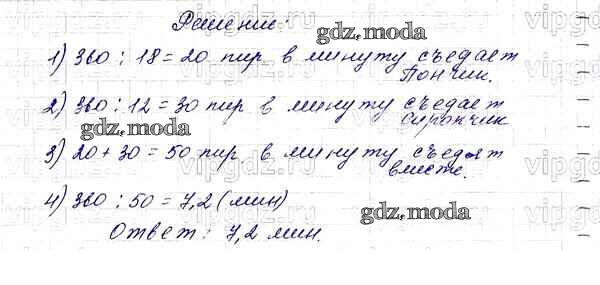 Решение:
gdz.moda
1) 360 : 18 = 20 пир. в минуту съедает
Пончик.
2) 360 : 12 = 30 пир. в минуту съедает
Сиропчик
gdz.moda
3) 20 + 30 = 50 пир. в минуту съедят
вместе.
4) 360 : 50 = 7,2 (мин)
gdz.moda
Ответ: 7,2 мин.